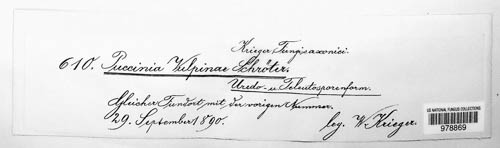 Krieger, Fungi saxonici.
610. Puccinia Vulpinae Schröter.
Uredo- u. Teleutosporenform.
Gleicher Fundort, mit der vorigen Nummer.
29. September 1890.
leg. W. Krieger.
US NATIONAL FUNGUS COLLECTIONS
978869